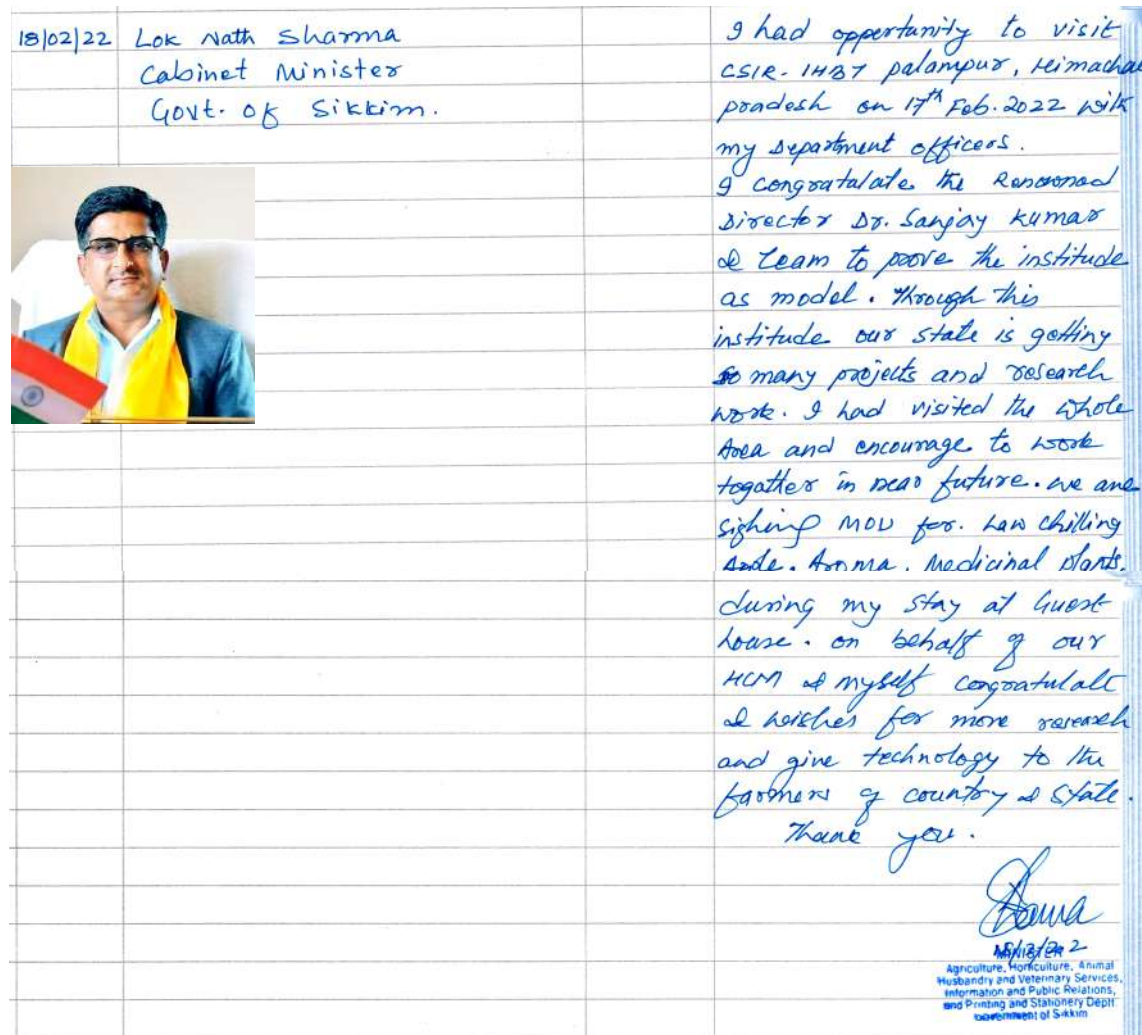 18/02/22 Lok Nath Sharma
Cabinet Minister
Govt. of Sikkim.
I had oppertunity to visit
CSIR-IHBT palampur, Himachal
pradesh on 17th Feb. 2022 with
my Department officers.
I congratalate the Renowned
Director Dr. Sanjay Kumar
& Team to prove the institude
as model. Through this
institude our state is getting
so many projects and research
work. I had visited the whole
Area and encourage to work
togather in near future. we are
sighing MOU for. Law chilling
Aroma. Medicinal plants.
during my stay at Guest
house. on behalf of our
HCM & myself congratulate
& wishes for more research
and give technology to the
farmers of country & State.
Thank you.
MINISTER
Agriculture, Horticulture, Animal
Husbandry and Veterinary Services,
Information and Public Relations,
and Printing and Stationery Deptt
Government of Sikkim